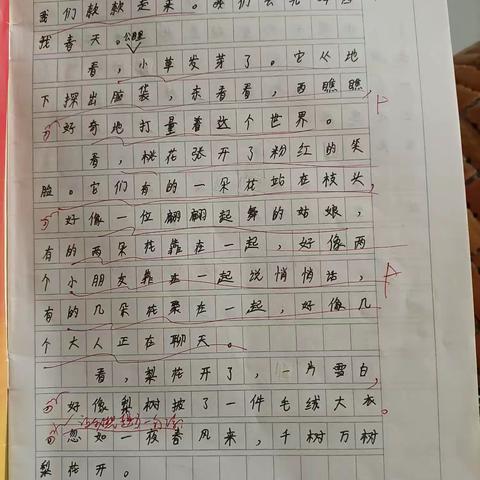 我们款款起来。咱们去
我春天。公园里
看，小草发芽了。它从地
下探出脑袋，东看看，西瞧瞧，
好奇地打量着这个世界。
看，桃花张开了粉红的笑
脸。它们有的一朵花站在枝头，
好像一位翩翩起舞的姑娘，
有的两朵花靠在一起，好像两
个小朋友靠在一起说悄悄话，
有的几朵花聚在一起，好像几
个大人正在聊天。
看，梨花开了，一片雪白，
好像梨树披了一件毛绒大衣。
忽如一夜春风来，千树万树
梨花开。